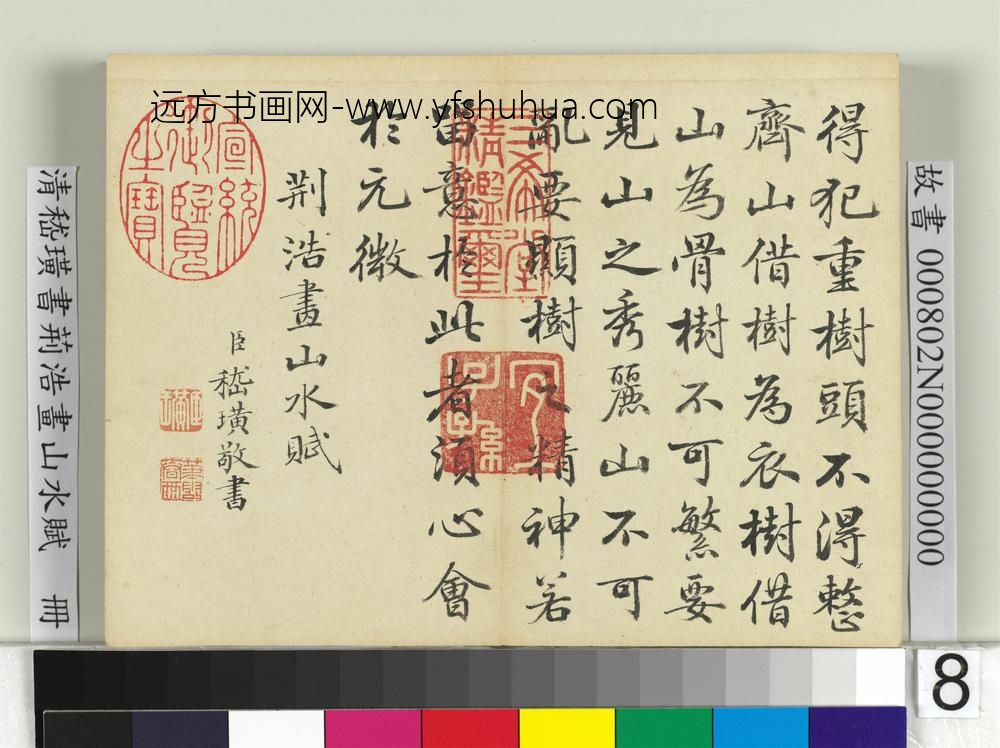 远方书画网-www.yfshuhua.com
故書 000802N000000000
得犯重樹頭不得整
齊山借樹為衣樹借
山為骨樹不可繁要
見山之秀麗山不可
亂要顯樹之精神若
留意於此者須心會
於元微
荆浩畫山水賦
臣嵇璜敬書
三希堂
精鑑璽
宜子孫
宣統
御覽
之寶
臣璜
清嵇璜書荊浩畫山水賦 冊
8